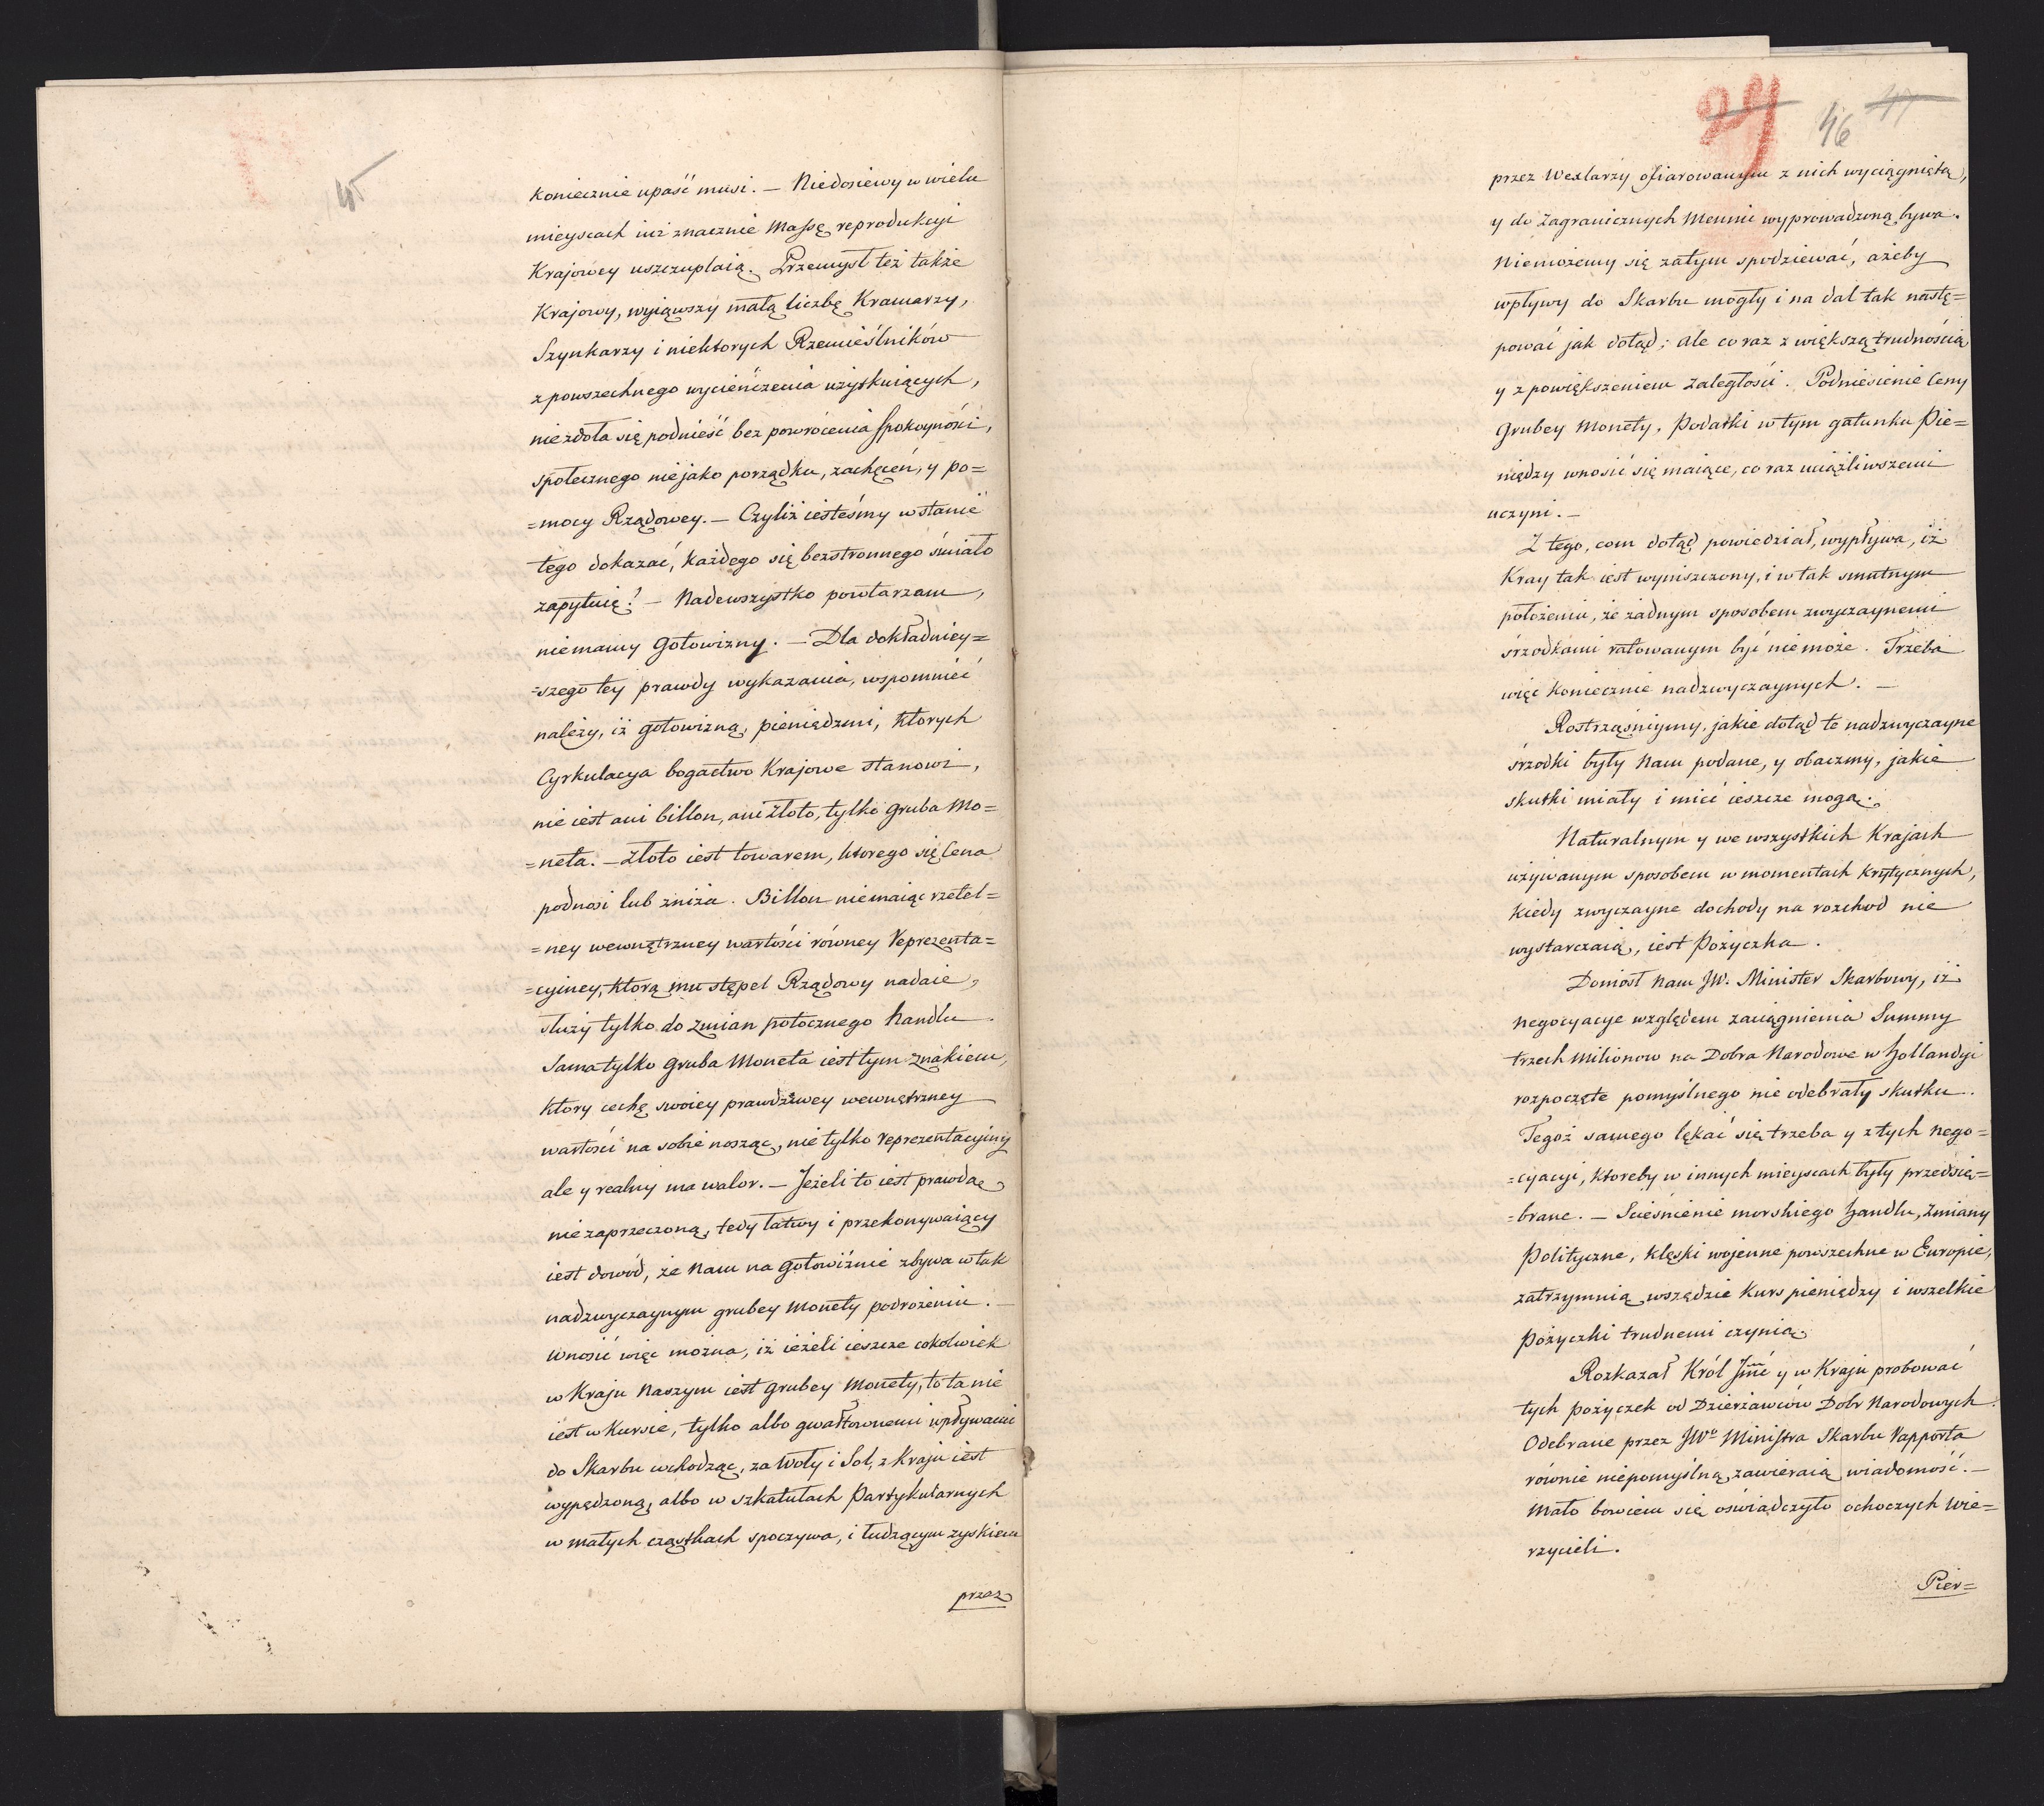 45
koniecznie upaść musi. — Niedosiewy w wielu
mieyscach iuż znacznie Massę reprodukcyi
Krajowey uszczuplaią. Przemysł też także
Krajowy, wyiąwszy małą liczbę Kramarzy,
Szynkarzy i niektorych Rzemieślników
z powszechnego wycieńczenia użyskuiących,
niezdoła się podnieść bez powrócenia spokoyności,
społecznego niejako porządku, zachęceń, y po=
=mocy Rządowey. — Czyliż iesteśmy w stanie
tego dokazać, każdego się bezstronnego śmiało
zapytuię? — Nadewszystko powtarzam,
niemamy gotowizny. — Dla dokładniey=
=szego tey prawdy wykazania, wspomnieć
należy, iż gotowizną, pieniędzmi, ktorych
Cyrkulacya bogactwo Krajowe stanowi,
nie iest ani billon, ani złoto, tylko gruba Mo=
=neta. — Złoto iest towarem, ktorego się Cena
podnosi lub zniża. Billon niemaiąc rzetel=
=ney wewnętrzney wartości równey reprezenta=
=cyiney, ktorą mu stępel Rządowy nadaie,
służy tylko do zmian potocznego handlu.
Sama tylko gruba Moneta iest tym znakiem,
ktory cechę swoiey prawdziwey wewnętrzney
wartości na sobie nosząc, nie tylko reprezentacyiny
ale y realny ma walor. — Jeżeli to iest prawdą
niezaprzeczoną, tedy łatwy i przekonywaiący
iest dowód, że nam na gotowiźnie zbywa w tak
nadzwyczaynym grubey monety podrożeniu. —
Wnosić więc można, iż ieżeli ieszcze cokolwiek
w Kraju Naszym iest grubey Monety, to ta nie
iest w Kursie, tylko albo gwałtownemi wpływami
do Skarbu wchodząc, za Woły i Sol, z Kraju iest
wypędzoną, albo w szkatułach Partykularnych
w małych cząstkach spoczywa, i łudzącym zyskiem
przez
24 46 47
przez Wexlarzy ofiarowanym z nich wyciągniętą,
y do Zagranicznych Mennic wyprowadzoną bywa.
Niemożemy się zatym spodziewać, ażeby
wpływy do Skarbu mogły i na dal tak nastę=
pować jak dotąd; ale co raz z większą trudnością
y z powiększeniem zaległości. Podniesienie Ceny
grubey Monety, Podatki w tym gatunku Pie=
niędzy wnosić się maiące, co raz uciążliwszemi
uczyni. —
Z tego, com dotąd powiedział, wypływa, iż
Kray tak iest wyniszczony, i w tak smutnym
położeniu, że żadnym sposobem zwyczaynemi
śrzodkami ratowanym być nie może. Trzeba
więc koniecznie nadzwyczaynych. —
Rostrząśniymy, jakie dotąd te nadzwyczayne
śrzodki były Nam podane, y obaczmy, jakie
skutki miały i mieć ieszcze mogą.
Naturalnym y we wszystkich Krajach
używanym sposobem w momentach krytycznych,
kiedy zwyczayne dochody na rozchod nie
wystarczaią, iest Pożyczka.
Doniosł Nam JW. Minister Skarbowy, iż
negocyacye względem zaciągnienia Summy
trzech Milionow na Dobra Narodowe w Hollandyi
rozpoczęte pomyślnego nie odebrały skutku.
Tegoż samego lękać się trzeba y z tych nego=
=cyacyi, ktoreby w innych mieyscach były przedsię=
=brane. — Scieśnienie morskiego handlu, Zmiany
Polityczne, klęski wojenne powszechne w Europie,
zatrzymuią wszędzie Kurs pieniędzy i wszelkie
Pożyczki trudnemi czynią.
Rozkazał Król Jmć y w Kraju probować
tych pożyczek od Dzierżawców Dobr Narodowych.
Odebrane przez JWo Ministra Skarbu Rapporta
równie niepomyślną zawieraią wiadomość. —
Mało bowiem się oświadczyło ochoczych Wie=
rzycieli.
Pier=